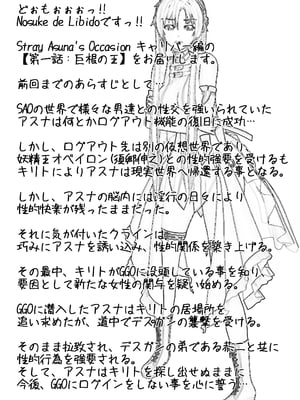 どぉもぉぉぉっ!!
Nosuke de Libidoですっ!!
Stray Asuna's Occasion キャリバー編の
【第一話：巨根の王】をお届けします。
前回までのあらすじとして…
SAOの世界で様々な男達との性交を強いられていた
アスナは何とかログアウト機能の復旧に成功…
しかし、ログアウト先は別の仮想世界であり、
妖精王オベイロン(須郷伸之)との性的強要を受けるも
キリトによりアスナは現実世界へ帰還する事となる。
しかし、アスナの脳内には淫行の日々により
性的快楽が残ったままだった。
それに気が付いたクラインは
巧みにアスナを誘い込み、性的関係を築き上げる。
その最中、キリトがGGOに没頭している事を知り、
要因として新たな女性の関与を疑い始める。
GGOに潜入したアスナはキリトの居場所を
追い求めたが、道中でデスガンの襲撃を受ける。
そのまま拉致され、デスガンの弟である恭二と並に
性的行為を強要される。
そして、アスナはキリトを探し出せぬままに
今後、GGOにログインをしない事を心に誓う…